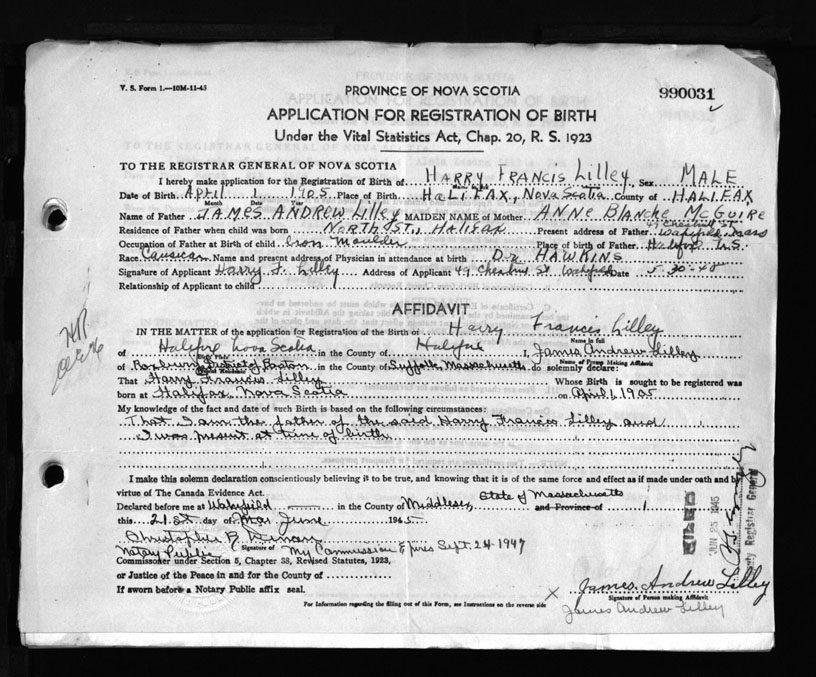 V. S. Form 1.—10M-11-43
990031
PROVINCE OF NOVA SCOTIA
APPLICATION FOR REGISTRATION OF BIRTH
Under the Vital Statistics Act, Chap. 20, R. S. 1923
TO THE REGISTRAR GENERAL OF NOVA SCOTIA
I hereby make application for the Registration of Birth of HARRY FRANCIS LILLEY, Sex MALE
Date of Birth APRIL 1 1905 Place of Birth HALIFAX, NOVA SCOTIA County of HALIFAX
Month Date Year
Name of Father JAMES ANDREW LILLEY MAIDEN NAME of Mother ANNE BLANCHE McGUIRE
Residence of Father when child was born NORTH ST., HALIFAX Present address of Father 49 Chestnut St Wakefield, Mass
Occupation of Father at Birth of child Iron Moulder Place of birth of Father Halifax N.S.
Race Name and present address of Physician in attendance at birth Dr. HAWKINS
Signature of Applicant Harry F. Lilley Address of Applicant 49 Chestnut St Wakefield Date
Relationship of Applicant to child
AFFIDAVIT
IN THE MATTER of the application for Registration of the Birth of Harry Francis Lilley
Name in full
of Halifax Nova Scotia in the County of Halifax I, James Andrew Lilley
of Roxbury Boston in the County of Suffolk, Massachusetts do solemnly declare:
Name of Person Making Affidavit
That Harry Francis Lilley Whose Birth is sought to be registered was
born at Halifax, Nova Scotia on April 1, 1905
My knowledge of the fact and date of such Birth is based on the following circumstances:
That I am the father of the said Harry Francis Lilley and
I was present at time of birth
I make this solemn declaration conscientiously believing it to be true, and knowing that it is of the same force and effect as if made under oath and by
virtue of The Canada Evidence Act.
Declared before me at Wakefield in the County of Middlesex, State of Massachusetts
and Province of
this 21st day of June
Christopher
Notary Public Signature of My Commission Expires Sept. 24 1947
Commissioner under Section 5, Chapter 38, Revised Statutes, 1923,
or Justice of the Peace in and for the County of
If sworn before a Notary Public affix seal.
James Andrew Lilley
Signature of Person making Affidavit
James Andrew Lilley
For Information regarding the filling out of this Form, see Instructions on the reverse side
JUN 25 1945
Deputy Registrar General